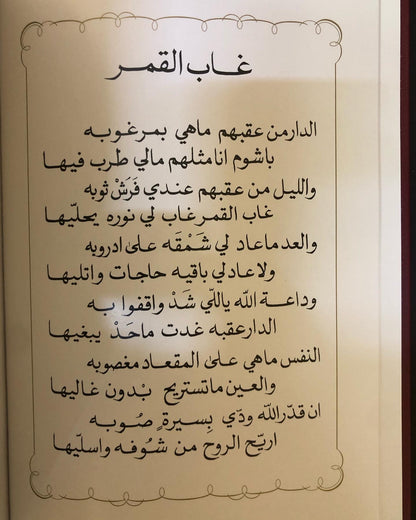 غاب القمر
الدار من عقبهم ماهي بمرغوبه
باشوم انا مثلهم مالي طرب فيها
والليل من عقبهم عندي فَرَشْ ثوبه
غاب القمر غاب لي نوره يحليّها
والعد ماعاد لي شَمْقَه على ادروبه
ولا عاد لي باقيه حاجات واتليها
وداعة الله ياللّي شَدْ واقفوا به
الدار عقبه غدت ماحَدْ يبغيها
النفس ماهي على المقعاد مغصوبه
والعين ماتستريح بْدون غاليها
ان قدّر الله ودّي بِسيرةٍ صُوبه
اريّح الروح من شُوفه واسلّيها